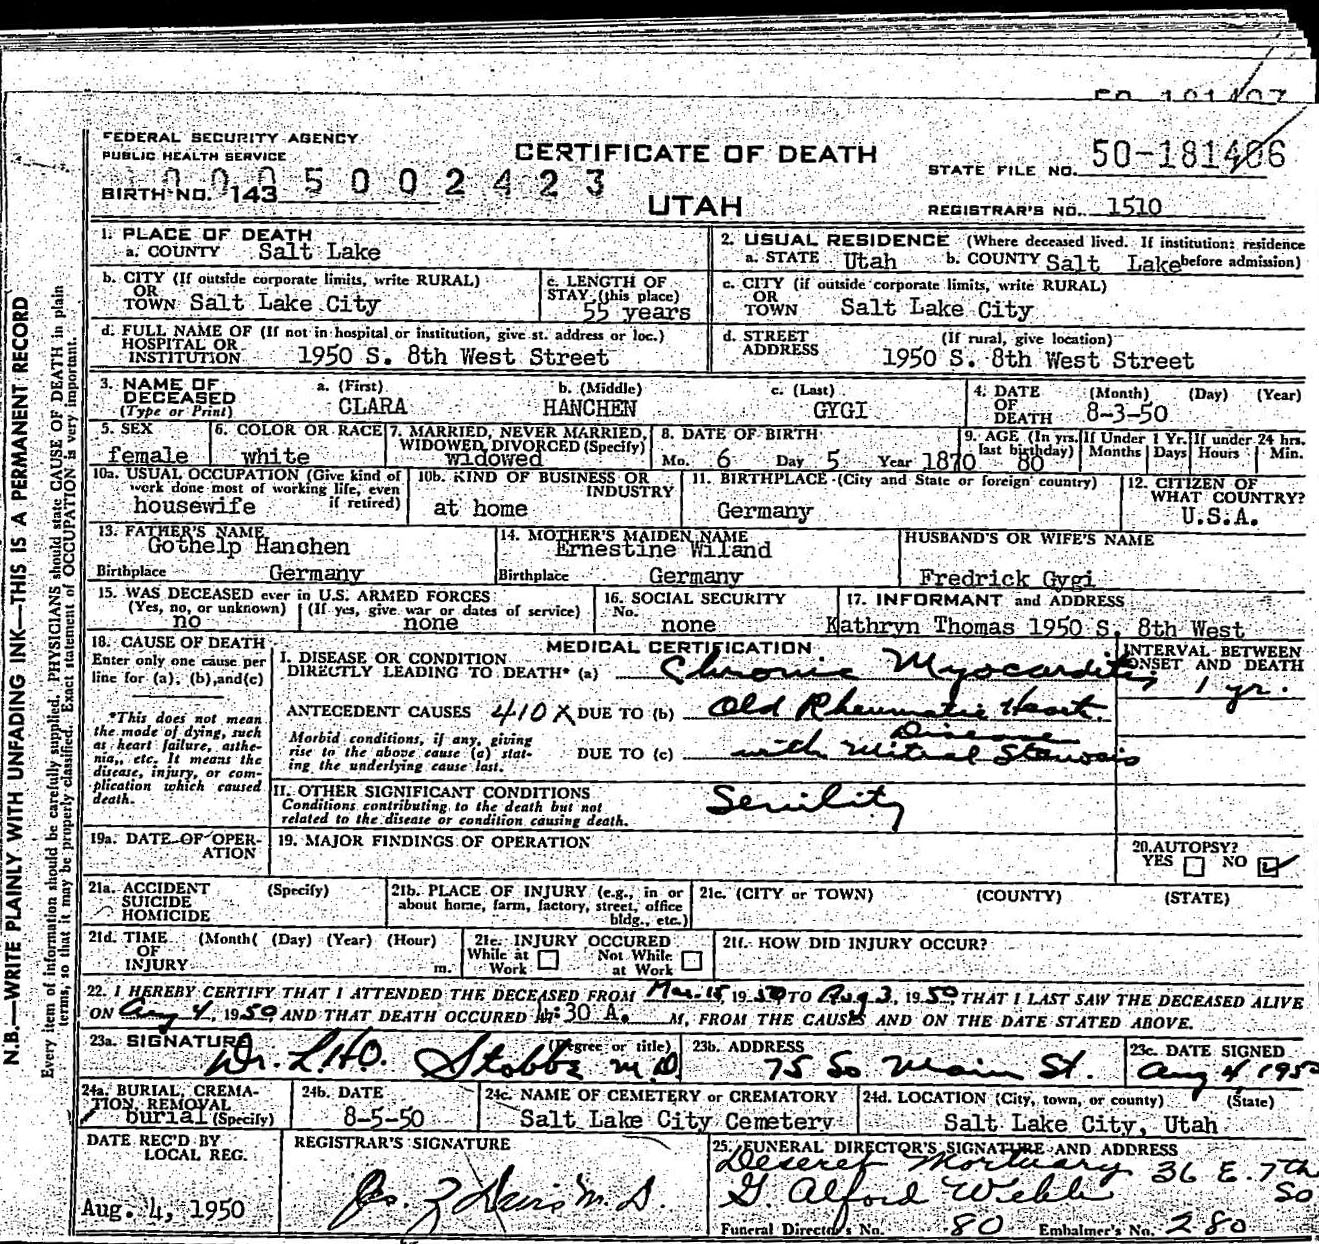 FEDERAL SECURITY AGENCY
PUBLIC HEALTH SERVICE
CERTIFICATE OF DEATH
STATE FILE NO. 50-181406
BIRTH NO. 143
5002423
UTAH
REGISTRAR'S NO. 1510
1. PLACE OF DEATH
a. COUNTY Salt Lake
2. USUAL RESIDENCE (Where deceased lived. If institution: residence before admission)
a. STATE Utah b. COUNTY Salt Lake
b. CITY (If outside corporate limits, write RURAL)
OR
TOWN Salt Lake City
c. LENGTH OF
STAY (this place)
55 years
c. CITY (if outside corporate limits, write RURAL)
OR
TOWN Salt Lake City
d. FULL NAME OF (If not in hospital or institution, give st. address or loc.)
HOSPITAL OR
INSTITUTION 1950 S. 8th West Street
d. STREET (If rural, give location)
ADDRESS 1950 S. 8th West Street
3. NAME OF
DECEASED
(Type or Print)
a. (First)
CLARA
b. (Middle)
HANCHEN
c. (Last)
GYGI
4. DATE (Month) (Day) (Year)
OF
DEATH 8-3-50
5. SEX
female
6. COLOR OR RACE
white
7. MARRIED, NEVER MARRIED,
WIDOWED, DIVORCED (Specify)
widowed
8. DATE OF BIRTH
Mo. 6 Day 5 Year 1870
9. AGE (In yrs. last birthday)
80
If Under 1 Yr.
Months Days
If under 24 hrs.
Hours Min.
10a. USUAL OCCUPATION (Give kind of
work done most of working life, even
if retired)
housewife
10b. KIND OF BUSINESS OR
INDUSTRY
at home
11. BIRTHPLACE (City and State or foreign country)
Germany
12. CITIZEN OF
WHAT COUNTRY?
U.S.A.
13. FATHER'S NAME
Gothelp Hanchen
Birthplace Germany
14. MOTHER'S MAIDEN NAME
Ernestine Wiland
Birthplace Germany
HUSBAND'S OR WIFE'S NAME
Fredrick Gygi
15. WAS DECEASED ever in U.S. ARMED FORCES
(Yes, no, or unknown) (If yes, give war or dates of service)
no none
16. SOCIAL SECURITY
No.
none
17. INFORMANT and ADDRESS
Kathryn Thomas 1950 S. 8th West
18. CAUSE OF DEATH
Enter only one cause per
line for (a), (b), and (c)
*This does not mean
the mode of dying, such
as heart failure, asthe-
nia, etc. It means the
disease, injury, or com-
plication which caused
death.
MEDICAL CERTIFICATION
I. DISEASE OR CONDITION
DIRECTLY LEADING TO DEATH* (a) Chronic Myocarditis
INTERVAL BETWEEN
ONSET AND DEATH
1 yr.
ANTECEDENT CAUSES 410X DUE TO (b) Old Rheumatic Heart
Disease
Morbid conditions, if any, giving
rise to the above cause (a) stat-
ing the underlying cause last.
DUE TO (c) with Mitral Stenosis
II. OTHER SIGNIFICANT CONDITIONS
Conditions contributing to the death but not
related to the disease or condition causing death.
Senility
19a. DATE OF OPER-
ATION
19. MAJOR FINDINGS OF OPERATION
20. AUTOPSY?
YES NO
21a. ACCIDENT (Specify)
SUICIDE
HOMICIDE
21b. PLACE OF INJURY (e.g., in or
about home, farm, factory, street, office
bldg., etc.)
21c. (CITY or TOWN) (COUNTY) (STATE)
21d. TIME (Month) (Day) (Year) (Hour)
OF
INJURY m.
21e. INJURY OCCURED
While at Work
Not While at Work
21f. HOW DID INJURY OCCUR?
22. I HEREBY CERTIFY THAT I ATTENDED THE DECEASED FROM Mar. 15, 1950 TO Aug 3, 1950 THAT I LAST SAW THE DECEASED ALIVE
ON Aug 4, 1950, AND THAT DEATH OCCURED :30 A. M, FROM THE CAUSES AND ON THE DATE STATED ABOVE.
23a. SIGNATURE (Degree or title)
Dr. L.H.O. Stobbe M.D.
23b. ADDRESS
75 So Main St.
23c. DATE SIGNED
Aug 4 1950
24a. BURIAL, CREMA-
TION, REMOVAL
burial (Specify)
24b. DATE
8-5-50
24c. NAME OF CEMETERY or CREMATORY
Salt Lake City Cemetery
24d. LOCATION (City, town, or county) (State)
Salt Lake City, Utah
DATE REC'D BY
LOCAL REG.
Aug. 4, 1950
REGISTRAR'S SIGNATURE
25. FUNERAL DIRECTOR'S SIGNATURE AND ADDRESS
Deseret Mortuary 36 E. 7th So
G. Alford Webb
Funeral Director's No. 80 Embalmer's No. 280
N.B.—WRITE PLAINLY WITH UNFADING INK—THIS IS A PERMANENT RECORD
Every item of information should be carefully supplied. PHYSICIANS should state CAUSE OF DEATH in plain
terms, so that it may be properly classified. Exact statement of OCCUPATION is very important.